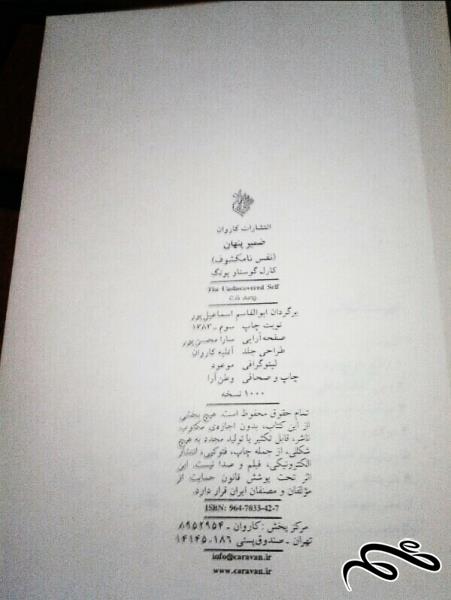 انتشارات کاروان
ضمیر پنهان
(نفس نامکشوف)
کارل گوستاو یونگ
The Undiscovered Self
C.G. Jung
برگردان ابوالقاسم اسماعیل‌پور
نوبت چاپ سوم - ۱۳۸۳
صفحه‌آرایی سارا محسن‌پور
طراحی جلد آتلیه کاروان
لیتوگرافی موعود
چاپ و صحافی وطن‌آرا
۱۰۰۰ نسخه
تمام حقوق محفوظ است. هیچ بخشی
از این کتاب، بدون اجازه‌ی مکتوب
ناشر، قابل تکثیر یا تولید مجدد به هیچ
شکلی، از جمله چاپ، فتوکپی، انتشار
الکترونیکی، فیلم و صدا نیست. این
اثر تحت پوشش قانون حمایت از
مؤلفان و مصنفان ایران قرار دارد.
ISBN: 964-7033-42-7
مرکز پخش: کاروان - ۸۹۵۲۹۵۴
تهران - صندوق پستی ۱۸۶-۱۴۱۴۵
info@caravan.ir
www.caravan.ir